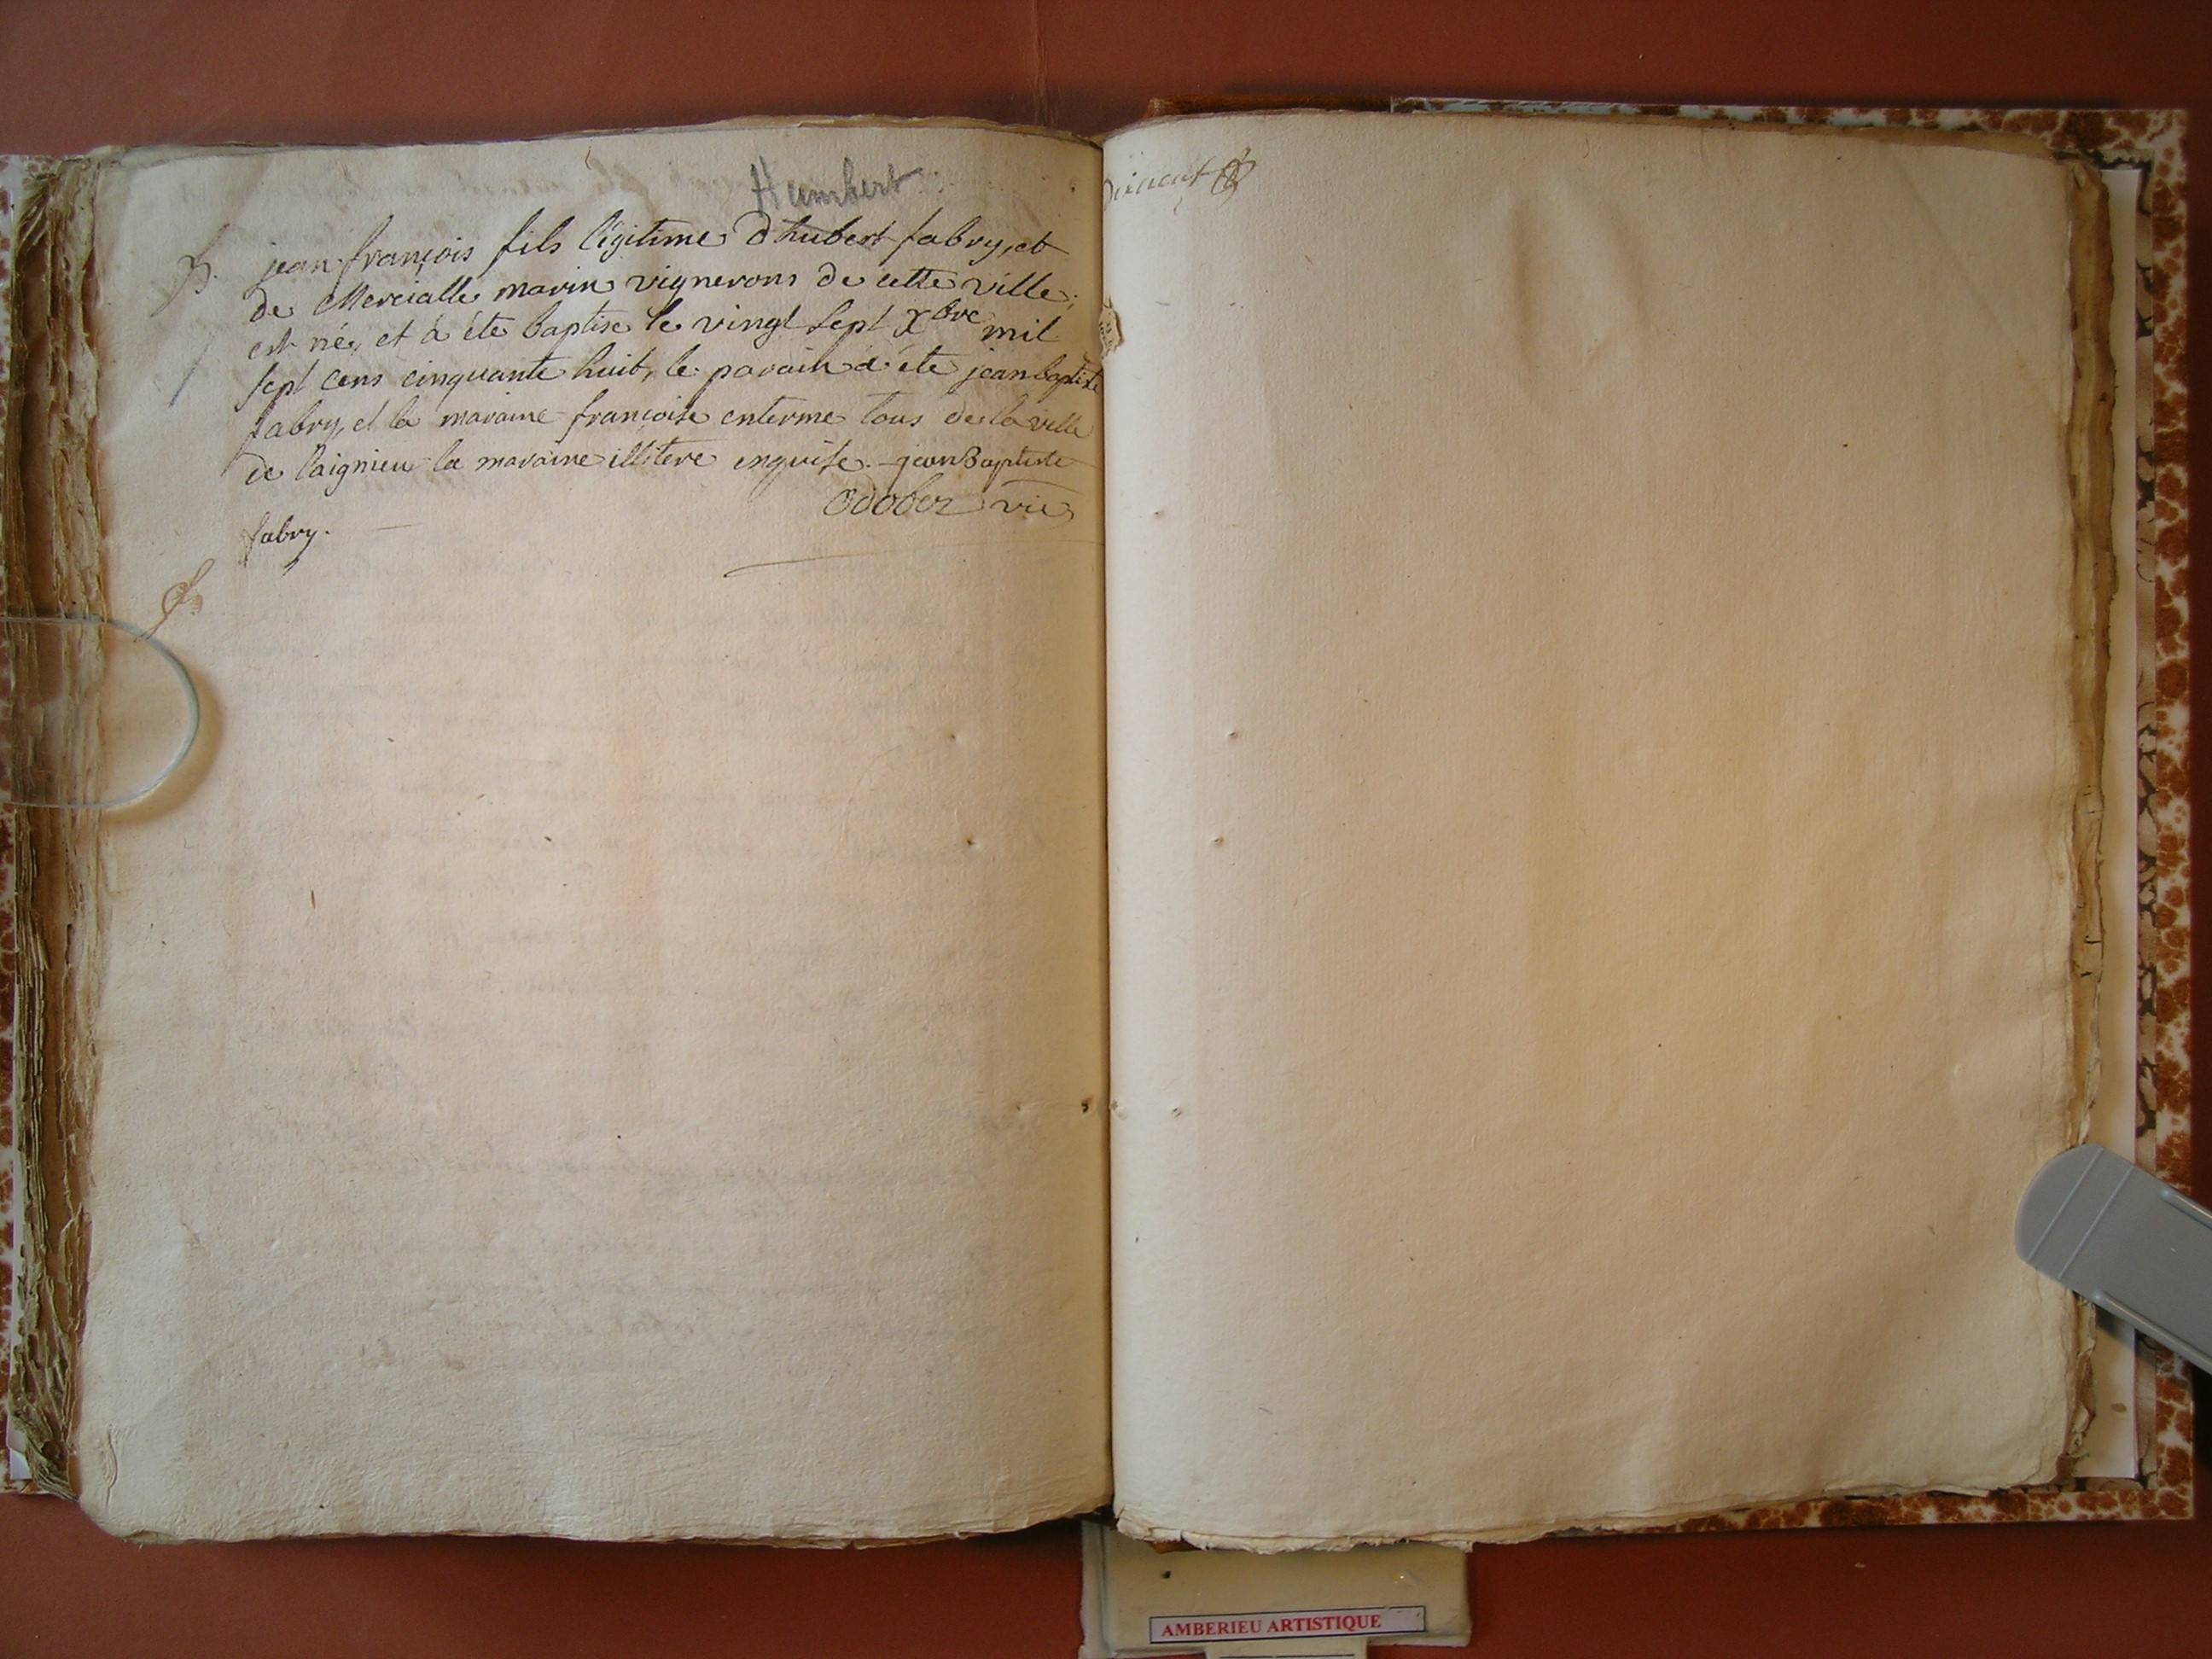 Humbert
jean françois fils légitime d'hubert fabry, et
de Mercialle marin vignerons de cette ville,
est né, et à été baptise le vingt sept Xbre mil
sept cens cinquante huit, le parain à été jean baptiste
fabry, et la maraine françoise enterme tous de la ville
de laignieu la maraine illitere enquise. jean Baptiste
fabry.
Odobez vic
AMBERIEU ARTISTIQUE